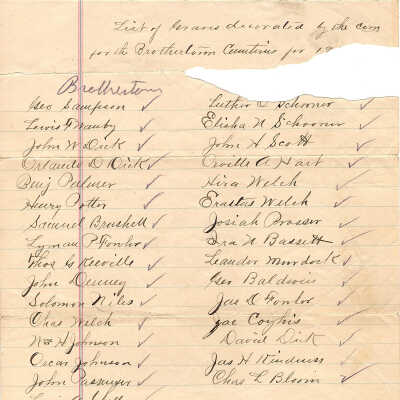 List of Graves decorated by the com
for the Brothertown Cemeteries for 19
Brothertown
Geo Sampson ✓
Lewis Fowler ✓
John W. Dick ✓
Orlando D Dick ✓
Benj Palmer ✓
Henry Potter ✓
Samuel Brushell ✓
Lyman P. Fowler ✓
Thos G ✓
John Denney ✓
Solomon Niles ✓
Chas Welch ✓
Wm H Johnson ✓
Oscar Johnson ✓
John ✓
Luther Schooner ✓
Elisha N Schooner ✓
John H Scott ✓
Orville A. Hart ✓
Hira Welch ✓
Erastus Welch ✓
Josiah Prosser ✓
Ira N. Bassett ✓
Leander Murdock ✓
Geo Baldwin ✓
Jas D Fowler ✓
Jac Coyhis ✓
David Dick ✓
Jas H Kindness ✓
Chas L Bloom ✓